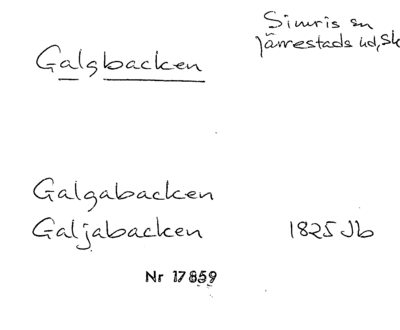 Simris sn
Järrestads hd, Sk
Galgbacken
Galgabacken
Galjabacken 1825 Jb
Nr 17859